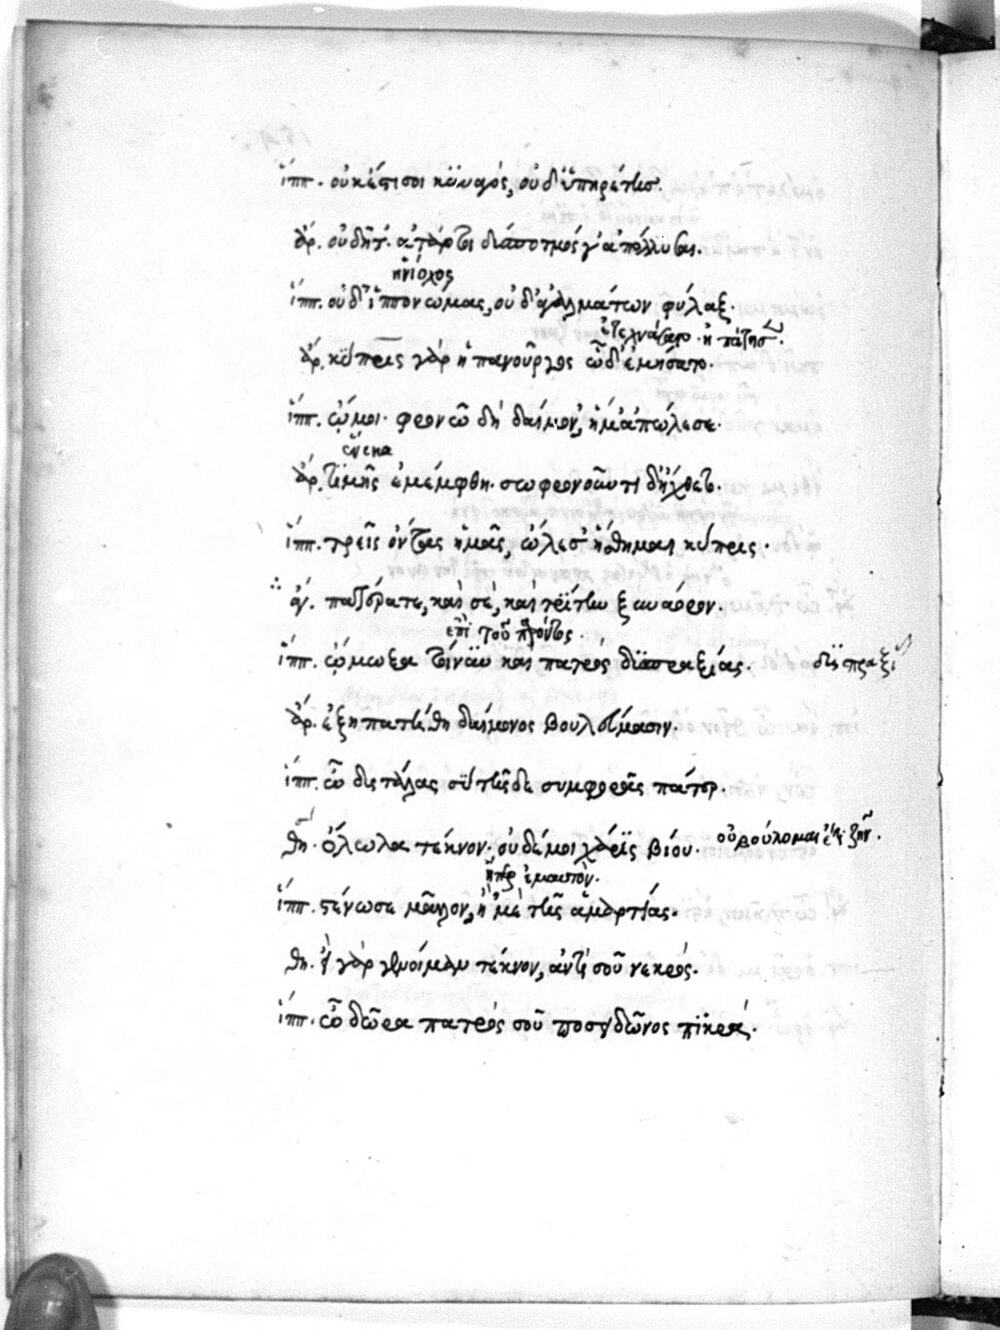 ἱππ. οὐκ ἔστι σοι κυναγός, οὐδ' ὑπηρέτης.
ἄρ. οὐ δῆτ'· ἀτάρ τοι διάποτμός γ' ἀπόλλυσαι.
ἡνίοχος
ἱππ. οὐδ' ἱππονώμας, οὐδ' ἀγαλμάτων φύλαξ.
ἐτεχνάσατο
ἄρ. κύπρις γὰρ ἡ πανοῦργος ὧδ' ἐμήσατο.
ἱππ. ὤμοι· φρονῶ δὴ δαίμον', ἥ μ' ἀπώλεσε.
ἕνεκα
ἄρ. τιμῆς ἐμέμφθη· σωφρονοῦντι δ' ἤχθετο.
ἱππ. τρεῖς ὄντας ἡμᾶς, ὤλεσ' ᾔσθημαι κύπρις.
ἄρ. πατέρα τε, καὶ σὲ, καὶ τρίτην ξυνάορον.
ἐπὶ τοῦ πρόντος.
ἱππ. ᾤμωξα τοίνυν καὶ πατρὸς δυσπραξίας. δυσπραξί
ἄρ. ἐξηπατήθη δαίμονος βουλεύμασιν.
ἱππ. ὦ δυστάλας σὺ τῆσδε συμφορᾶς πάτερ.
θη. ὄλωλα τέκνον· οὐδέ μοι χάρις βίου. οὐ βούλομαι ἔτι ζῆν.
ἤπερ ἐμαυτὸν.
ἱππ. στένω σε μᾶλλον, ἢ 'μὲ τῆς ἁμαρτίας.
θη. εἰ γὰρ γενοίμην τέκνον, ἀντὶ σοῦ νεκρός.
ἱππ. ὦ δῶρα πατρὸς σοῦ ποσειδῶνος πικρά.